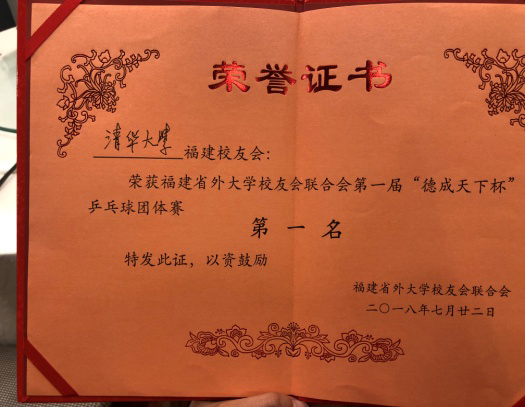 荣誉证书
清华大学福建校友会：
荣获福建省外大学校友会联合会第一届“德成天下杯”
乒乓球团体赛
第一名
特发此证，以资鼓励
福建省外大学校友会联合会
二〇一八年七月廿二日